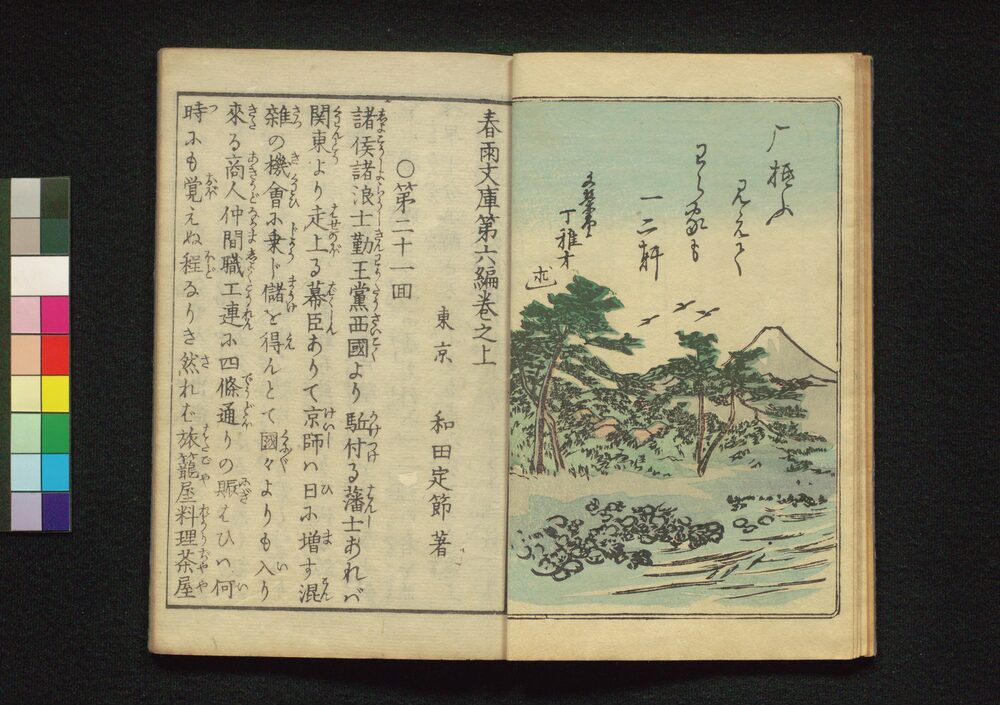 見えて
わら家も
一二軒
丁雅才
述
春雨文庫第六編巻之上
東京 和田定節著
○第二十一回
諸侯諸浪士勤王黨西國より駈付る藩士あれバ
関東より走上る幕臣ありて京師ハ日に増す混
雑の機會に乗じ儲を得んとて國々よりも入り
來る商人仲間職工連に四條通りの賑はひハ何
時にも覚えぬ程なりき然れば旅籠屋料理茶屋